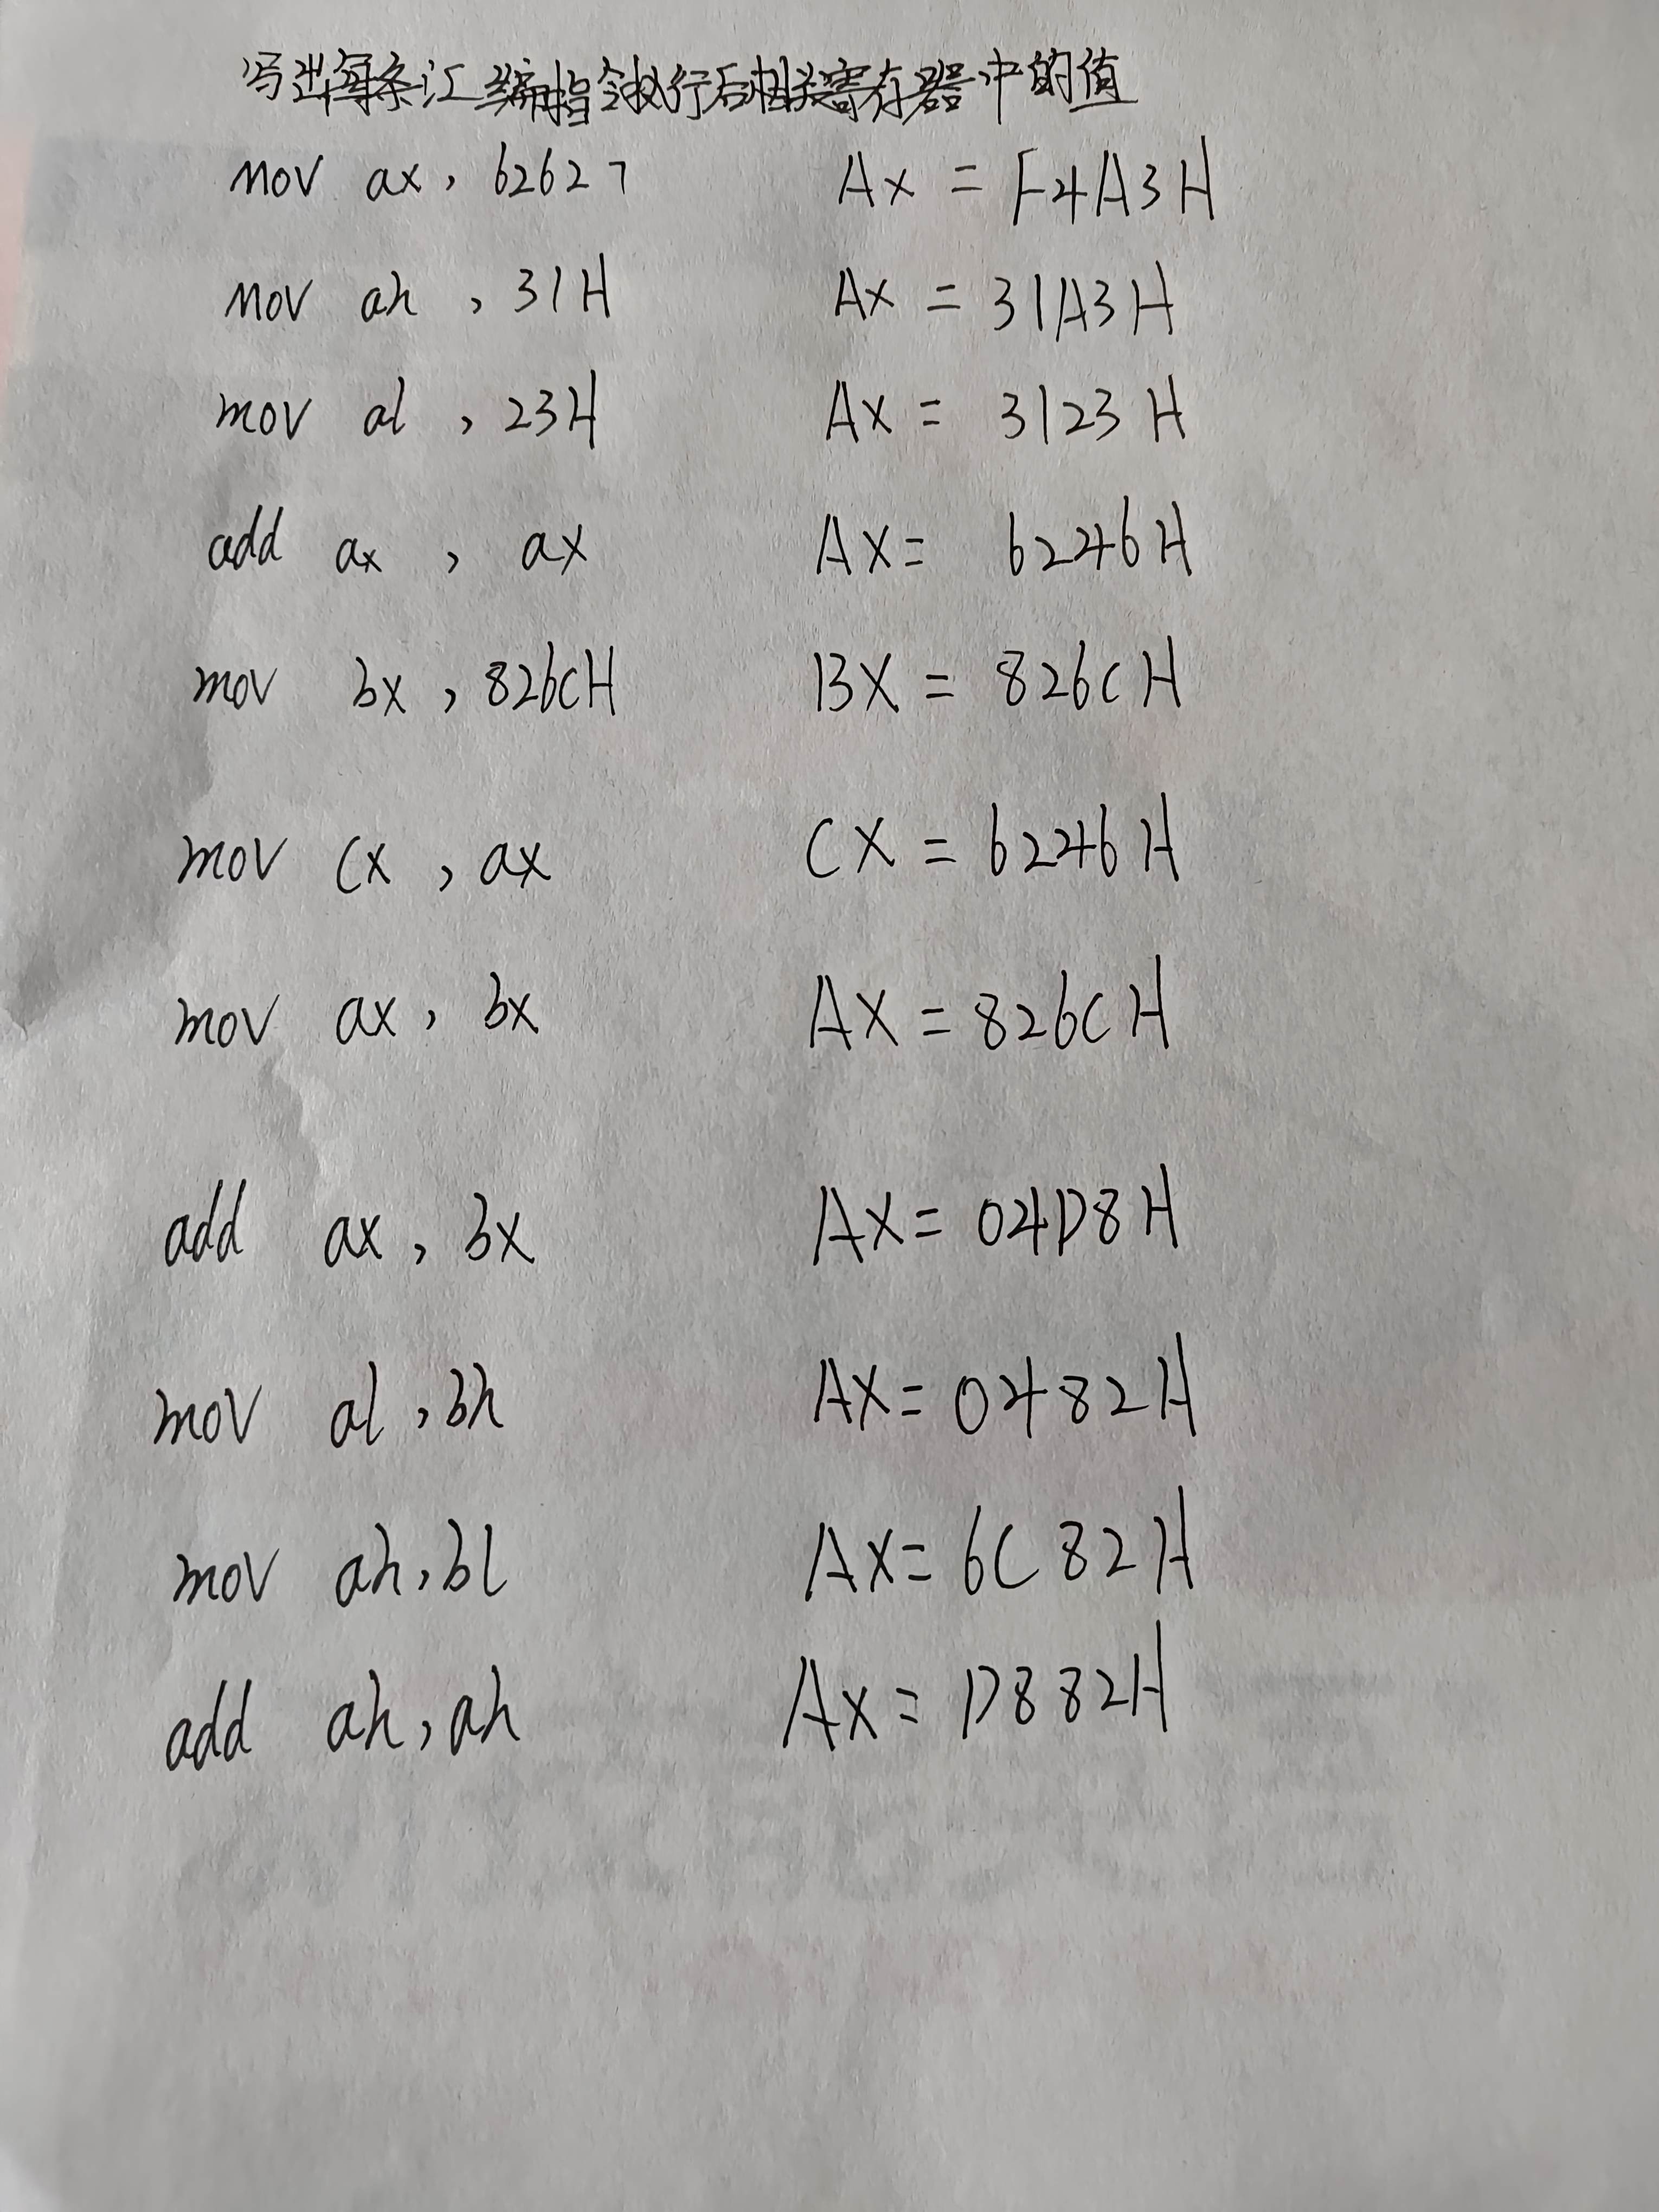 写出每条汇编指令执行后相关寄存器中的值
mov ax, 62627 AX = F4A3H
mov ah, 31H AX = 31A3H
mov al, 23H AX = 3123H
add ax, ax AX = 6246H
mov bx, 826CH BX = 826CH
mov cx, ax CX = 6246H
mov ax, bx AX = 826CH
add ax, bx AX = 04D8H
mov al, bh AX = 0482H
mov ah, bl AX = 6C82H
add ah, ah AX = D882H